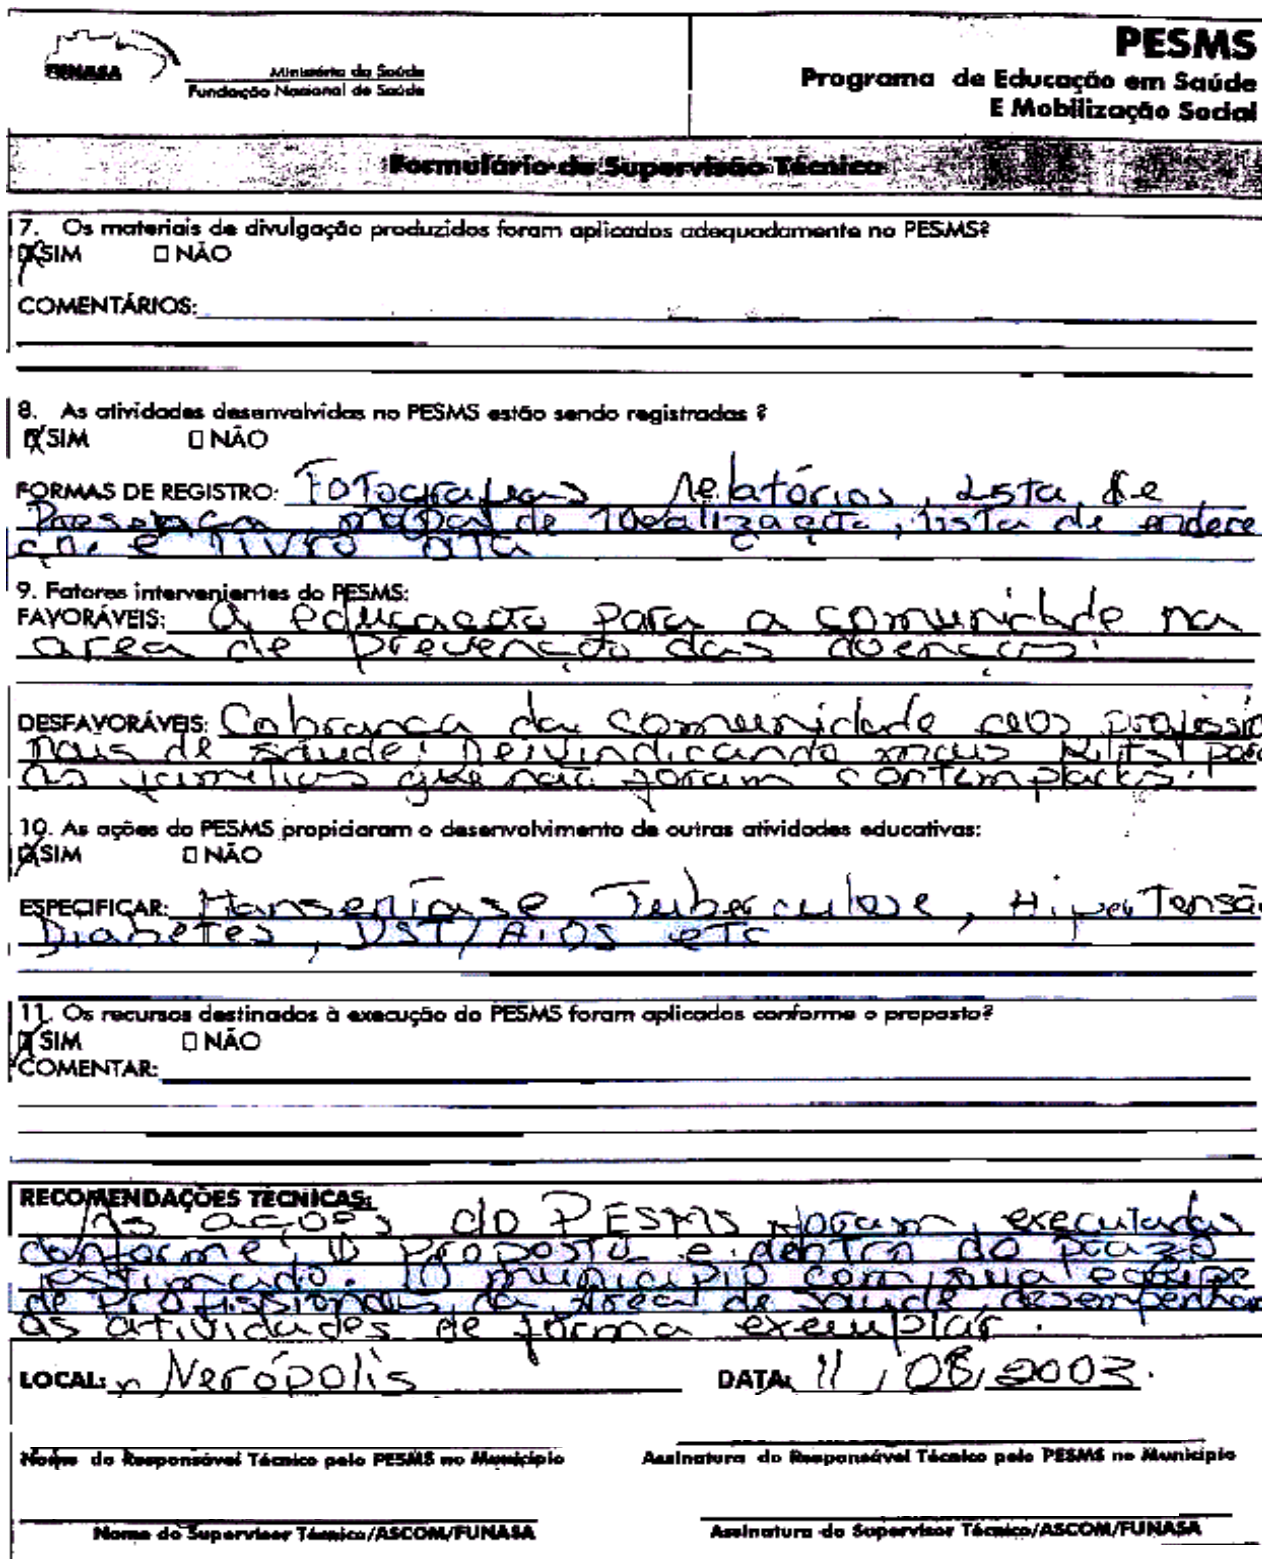 FUNASA
Ministério da Saúde
Fundação Nacional de Saúde
PESMS
Programa de Educação em Saúde
E Mobilização Social
Formulário de Supervisão Técnica
7. Os materiais de divulgação produzidos foram aplicados adequadamente no PESMS?
☒ SIM ☐ NÃO
COMENTÁRIOS:
8. As atividades desenvolvidas no PESMS estão sendo registradas ?
☒ SIM ☐ NÃO
FORMAS DE REGISTRO: Fotografias relatórios, Lista de
Presença, mapa de localização, lista de endere
ço. e livro ata
9. Fatores intervenientes do PESMS:
FAVORÁVEIS: A educação para a comunidade na
area de prevenção das doenças.
DESFAVORÁVEIS: Cobrança da comunidade aos profissio
nais de saúde; Reivindicando mais Kilts para
as familias que não foram contempladas.
10. As ações do PESMS propiciaram o desenvolvimento de outras atividades educativas:
☒ SIM ☐ NÃO
ESPECIFICAR: Hanseníase Tuberculose, Hipertensão
Diabetes, DST/AIDS etc
11. Os recursos destinados à execução do PESMS foram aplicados conforme o proposto?
☒ SIM ☐ NÃO
COMENTAR:
RECOMENDAÇÕES TÉCNICAS:
As ações do PESMS foram executadas
conforme o proposto e dentro do prazo
estimado. O município com sua equipe
de profissionais da área de saúde, desempenham
as atividades de forma exemplar.
LOCAL: Nerópolis DATA: 11 / 08 / 2003.
Nome do Responsável Técnico pelo PESMS no Município Assinatura do Responsável Técnico pelo PESMS no Município
Nome do Supervisor Técnico/ASCOM/FUNASA Assinatura do Supervisor Técnico/ASCOM/FUNASA